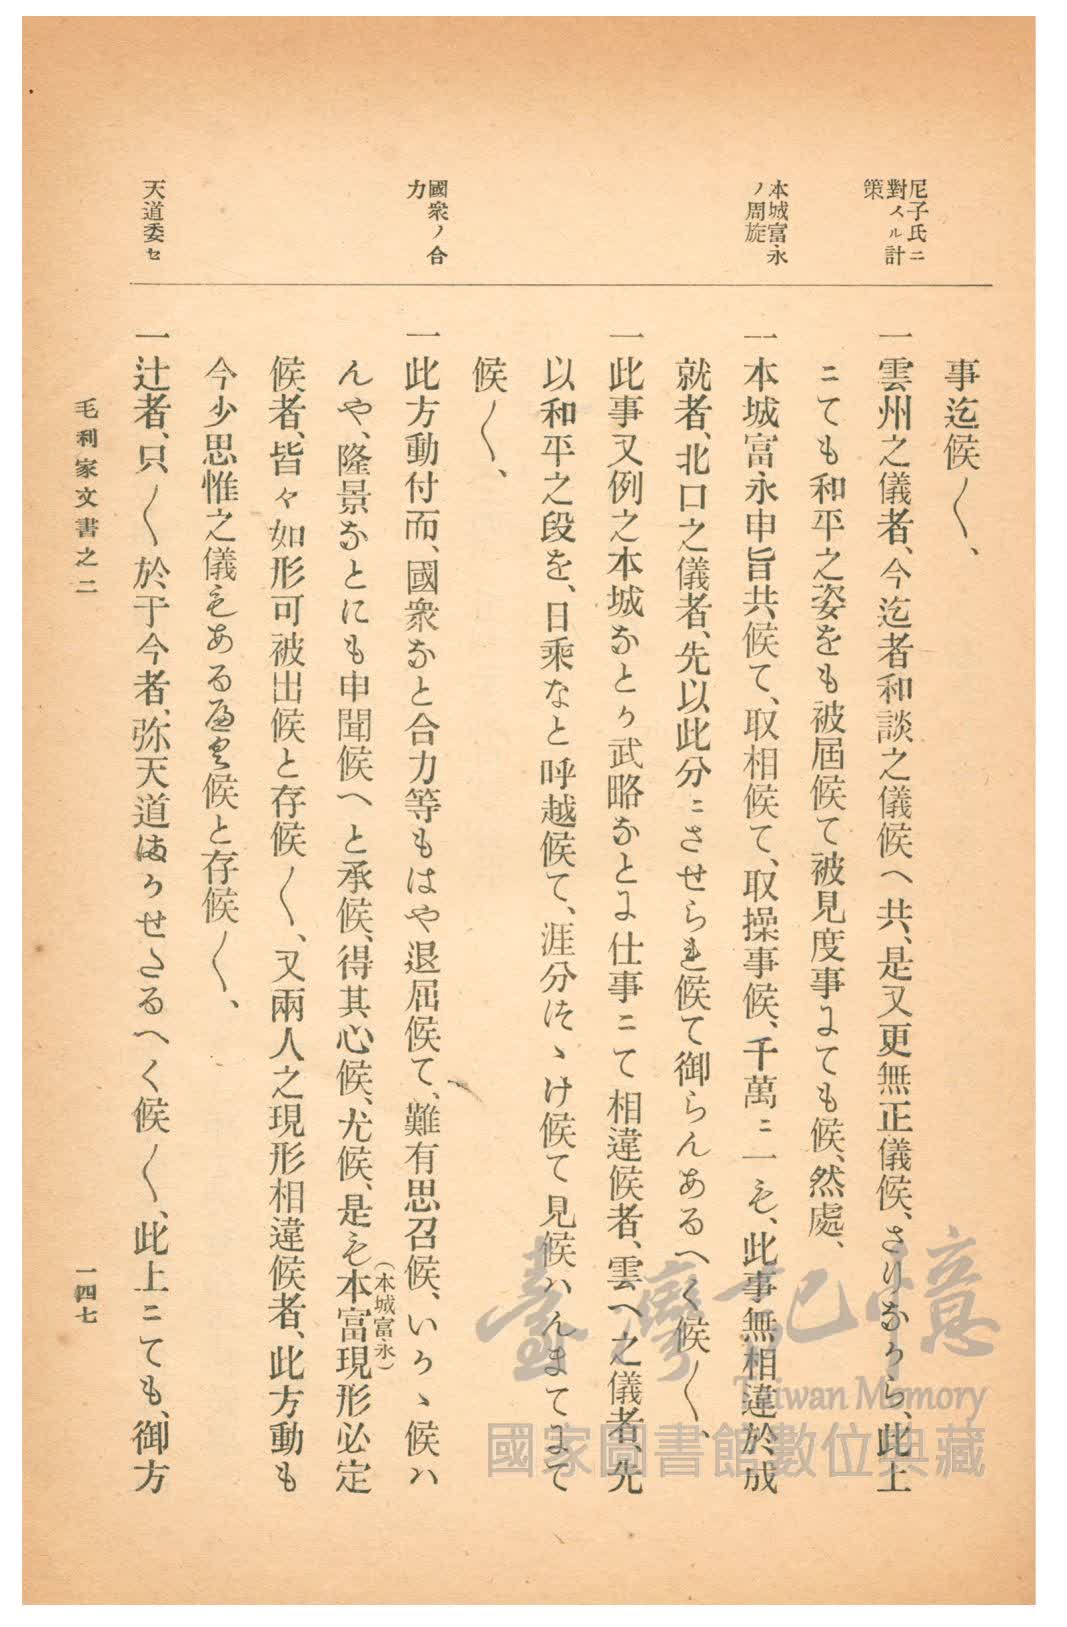 尼子氏ニ
對スル計
策
本城富永
ノ周旋
國衆ノ合
力
天道委セ
事迄候〱、
一雲州之儀者、今迄者和談之儀候へ共、是又更無正儀候、さりなから、此上
ニても和平之姿をも被屆候て被見度事まても候、然處、
一本城富永申旨共候て、取相候て、取操事候、千萬ニ一も、此事無相違於成
就者、北口之儀者、先以此分ニさせられ候て御らんあるへく候〱、
一此事又例之本城なとか武略なとま仕事ニて相違候者、雲へ之儀者、先
以和平之段を、日乘なと呼越候て、涯分はゝけ候て見候ハんまてまて
候〱、
一此方動付而、國衆なと合力等もはや退屈候て、難有思召候、いかゝ候ハ
んや、隆景なとにも申聞候へと承候、得其心候、尤候、是も本富現形必定
（本城富永）
候者、皆々如形可被出候と存候〱、又兩人之現形相違候者、此方動も
今少思惟之儀もある候と存候〱、
一辻者、只〱於于今者、弥天道まかせたるへく候〱、此上ニても、御方
毛利家文書之二
一四七
臺灣記憶
Taiwan Memory
國家圖書館數位典藏